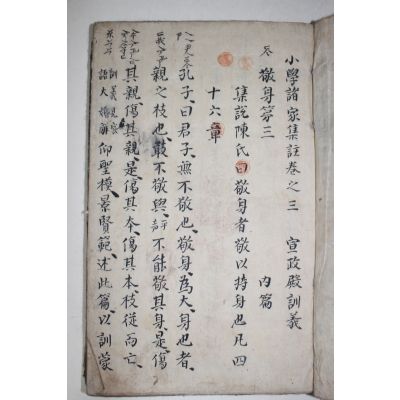 小學諸家集註卷之三 宣政殿訓義
敬身第三 內篇
集說陳氏曰敬身者敬以持身也凡四
十六章
孔子曰君子無不敬也敬身為大身也者
親之枝也敢不敬與不能敬其身是傷
其親傷其親是傷其本傷其本枝從而亡
仰聖模景賢範述此篇以訓蒙